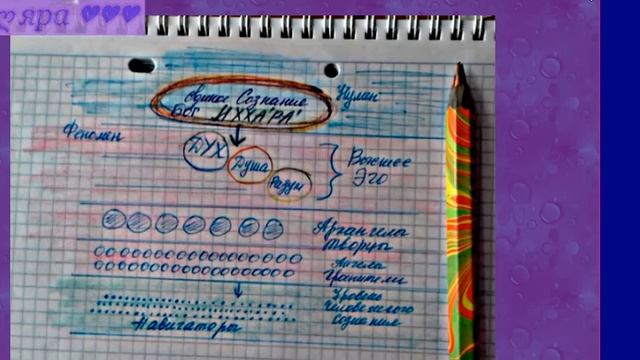 яра
Единое Сознание
Бог ИХХА'РА'
Феномен
ДУХ
Душа
Разум
Высшее
Эго
Архангела
Творцы
Ангела
Хранители
Уровень
Человеческого
Сознания
Навигаторы